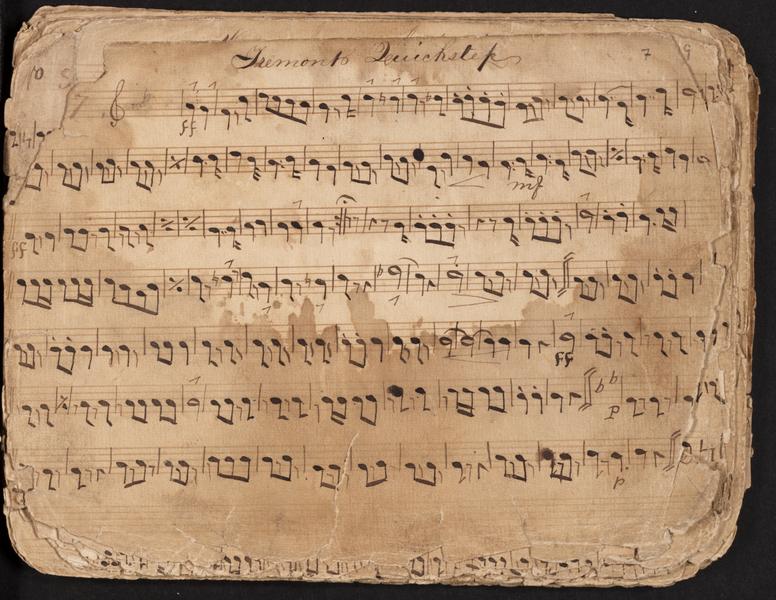 Tremont Quickstep 7 9
10
7
ff
mf
ff
ff
p
p